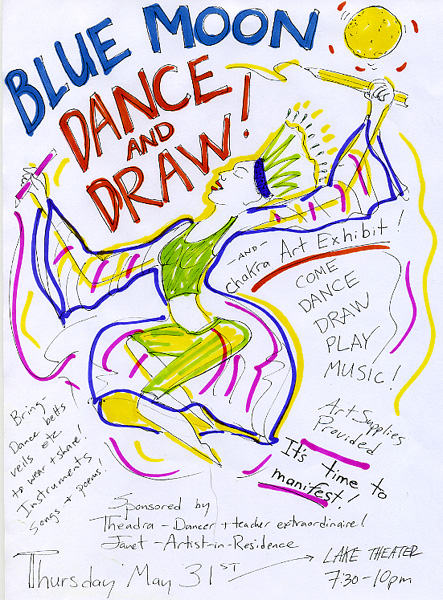 BLUE MOON
DANCE
AND
DRAW!
-AND-
Chakra Art Exhibit!
COME
DANCE
DRAW
PLAY
MUSIC!
Art Supplies
Provided
It's time to
manifest!
Bring-
Dance belts
veils etc
to wear + share!
Instruments
Songs + poems!
Sponsored by
Theadra - Dancer + teacher extraordinaire!
Janet - Artist-in-Residence
Thursday May 31ST → LAKE THEATER
7:30-10pm